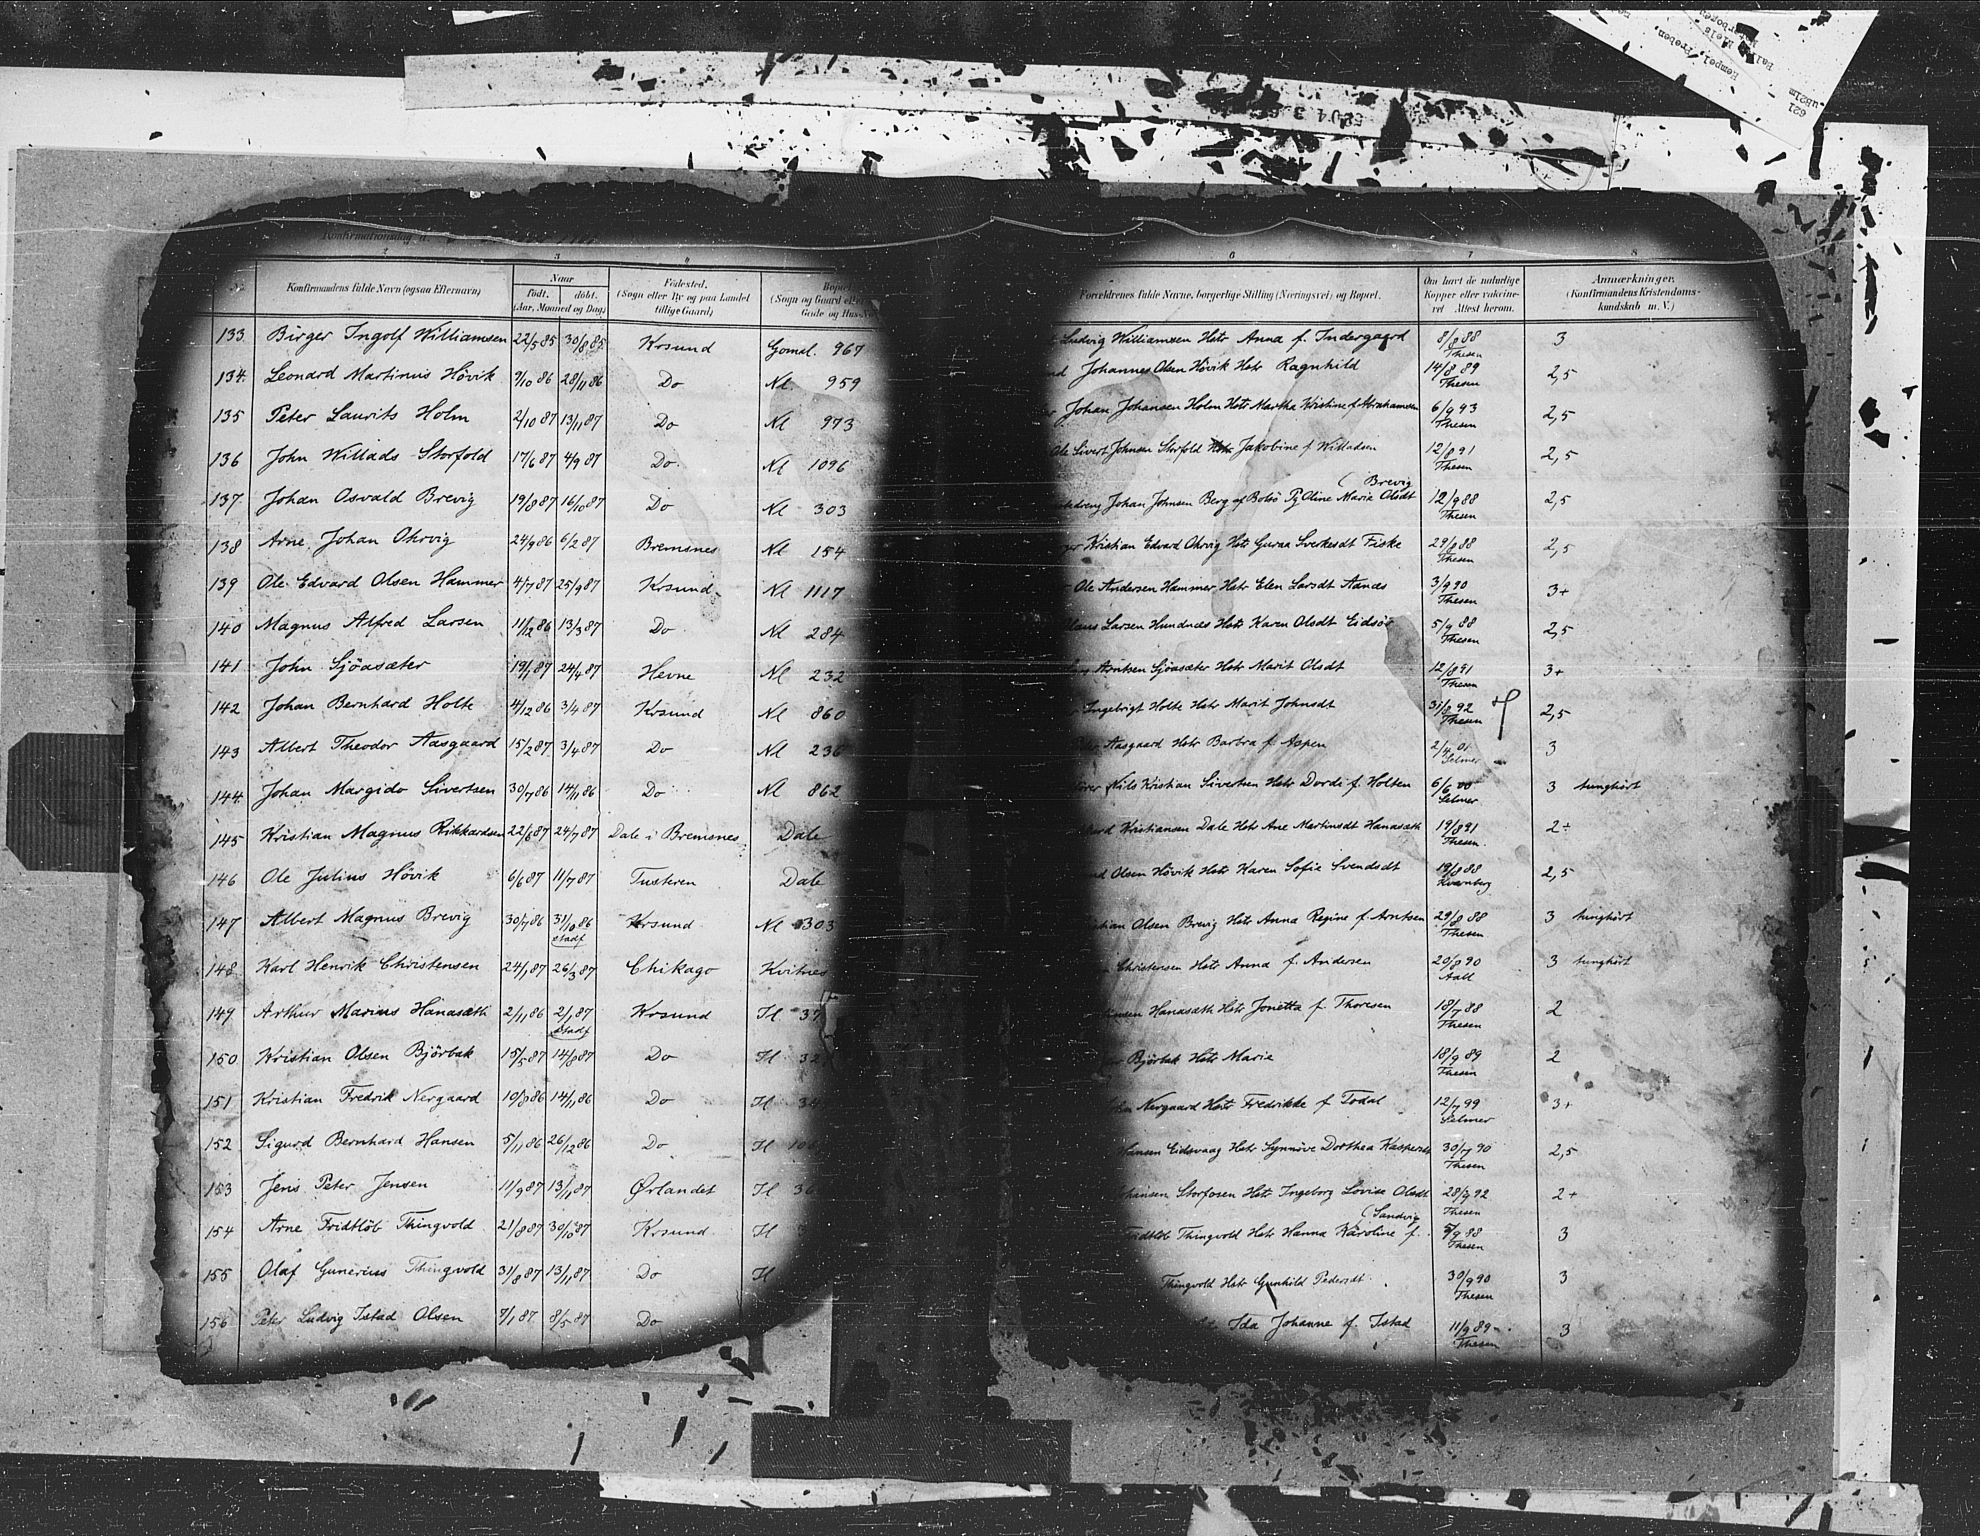 Konfirmationsdag d.
2 3 4
Konfirmandens fulde Navn (ogsaa Efternavn)
Naar
født. døbt.
(Aar, Maaned og Dag)
Fødested.
(Sogn eller By og paa Landet
tillige Gaard)
Bopæl
(Sogn og Gaard
Gade og Hus-No.
133 Birger Ingolf Williamsen 22/5 85 30/8 85 Krsund Gomal. 967
134. Leonard Martinus Hövik 9/10 86 28/11 86 Do Nl 959
135 Peter Laurits Holm 2/10 87 13/11 87 Do Nl 973
136 John Willads Storfold 17/6 87 4/9 87 Do. Nl 1096
137. Johan Osvald Brevig 19/8 87 16/10 87 Do Nl 303
138 Arne Johan Ohrvig 24/9 86 6/2 87 Bremsnes Nl 154
139 Ole Edvard Olsen Hammer 4/7 87 25/9 87 Krsund. Nl 1117
140 Magnus Alfred Larsen 11/12 86 13/3 87 Do Nl 284
141 John Sjöasæter 19/1 87 24/4 87 Hevne Nl 232
142 Johan Bernhard Holte 4/12 86 3/4 87 Krsund Nl 860
143 Albert Theodor Aasgaard 15/2 87 3/4 87 Do Nl 236
144. Johan Margido Sivertsen 30/7 86 14/11 86 Do Nl 862
145 Kristian Magnus Rikhardsen 22/6 87 24/7 87 Dale i Bremsnes Dale
146 Ole Julius Hövik 6/6 87 11/7 87 Tusteren Dale
147 Albert Magnus Brevig 30/7 86 31/10 86 stadf Krsund Nl 303
148 Karl Henrik Christensen 24/1 87 26/3 87 Chikago Kvitnes
149 Arthur Marius Hanasæth 2/11 86 2/1 87 stadf Krsund Kl 37
150 Kristian Olsen Björbak 15/5 87 14/8 87 Do Kl 32
151 Kristian Fredrik Nergaard 10/8 86 14/11 86 Do Kl
152 Sigurd Bernhard Hansen 5/11 86 26/12 86 Do Kl
153 Jens Peter Jensen 11/9 87 13/11 87 Ørlandet Kl 36
154 Arne Fridtlöb Thingvold 21/8 87 30/10 87 Krsund. Kl
155 Olaf Gunerius Thingvold 31/8 87 13/11 87 Do Kl
156 Peter Ludvig Istad Olsen 7/1 87. 8/5 87 Do
6 7 8
Forældrenes fulde Navne, borgerlige Stilling (Næringsvei) og Bopæl.
Om havt de naturlige
Kopper eller vakcine-
ret Attest herom.
Anmærkninger.
(Konfirmandens Kristendoms-
kundskab m. V.)
Ludvig Williamsen Hstr Anna f. Indergaard 8/8 88 Thesen 3
Johannes Olsen Hövik Hstr Ragnhild 14/8 89 Thesen 2,5
Johan Johansen Holm Hstr Martha Kristine f. Abrahamsen 6/9 93 Thesen 2,5
Ole Sivert Johnsen Storfold Hstr Jakobine f. Willadsen 12/8 91 Thesen 2,5
( Brevig
Johan Johnsen Berg af Bolsö Pg Oline Marie Olsdt 12/9 88 Thesen 2,5
Kristian Edvard Ohrvig Hstr Guraa Sverkesdt Fiske 29/8 88 Thesen 2,5
Ole Andersen Hammer Hstr Elen Larsdt Aanæs 3/9 90 Thesen 3+
Larsen Hundnes Hstr Karen Olsdt Eidsöe 5/9 88 Thesen 2,5
Arntsen Sjöasæter Hstr Marit Olsdt 12/8 91 Thesen 3+
Ingebrigt Holte Hstr Marit Johnsdt 31/8 92 Thesen 2,5
Aasgaard Hstr Barbra f. Aspen 2/4 01 Selmer 3
Nils Kristian Sivertsen Hstr Dordi f. Holten 6/6 00 Selmer 3 tunghört
Kristiansen Dale Hstr Ane Martinsdt Hanasæth 19/8 91 Thesen. 2÷
Olsen Hövik Hstr Karen Sofie Svendsdt 19/8 88 Kvernberg 2,5
Olsen Brevig Hstr Anna Regine f. Arntsen 29/8 88 Thesen 3 tunghört
Christensen Hstr Anna f. Andersen 20/8 90 Aall 3 tunghört
Hanasæth Hstr Jonetta f. Thoresen 18/7 88 Thesen 2
Björbak Hstr Marie 18/9 89 Thesen 2
Nergaard Hstr Fredrikke f. Todal 12/7 99 Selmer 3+
Hansen Eidsvaag Hstr Synnöve Dorthea Kaspersdt 30/7 90 Thesen 2,5
Storfosen Hstr Ingeborg Lovise Olsdt 28/7 92 Thesen 2+
( Sandvig
Thingvold Hstr Hanna Karoline f. 5/9 88 Thesen 3
Thingvold Hstr Gunhild Pedersdt 30/9 90 Thesen 3
Ida Johanne f. Istad 11/9 89 Thesen 3